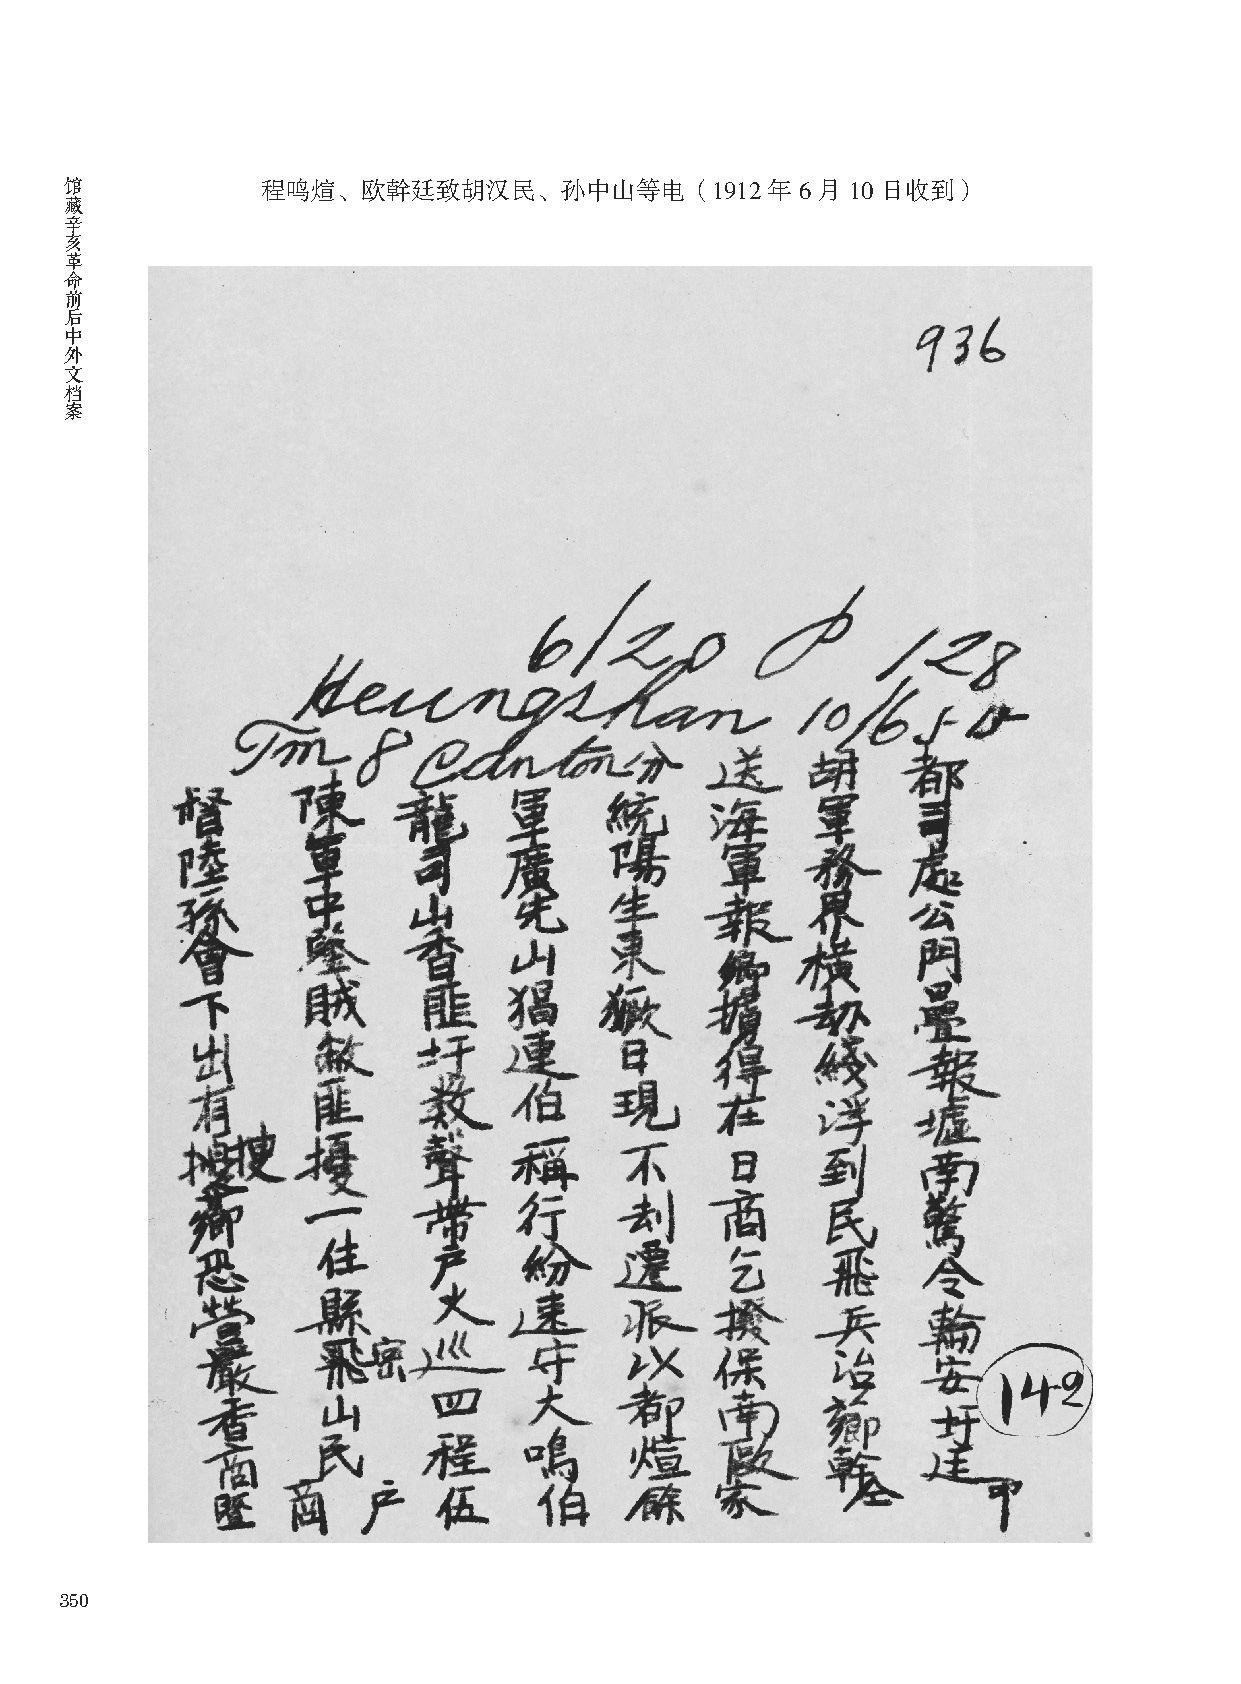 馆藏辛亥革命前后中外文档案
程鸣煊、欧幹廷致胡汉民、孙中山等电（1912年6月10日收到）
936
6/20 128
Heungshan 10/6
Tm 8 Canton 分送胡都
督陳龍軍統海軍司
陸軍司廣陽軍務處
孫中山先生報界公
會鑒香山東鄉橫門
下賊匪猖獗擄劫疊
出圩連日得綫報
有匪数伯現在浮墟
搜擾聲稱不日到南
鄉一帶行刦商民驚
恐住戶紛遷乞飛令
營縣火速派撥兵輪
嚴密巡守以保治安
香山四大都南鄉圩
商民程鳴煊歐幹廷
暨商戶伍伯餘家仝印
142
350